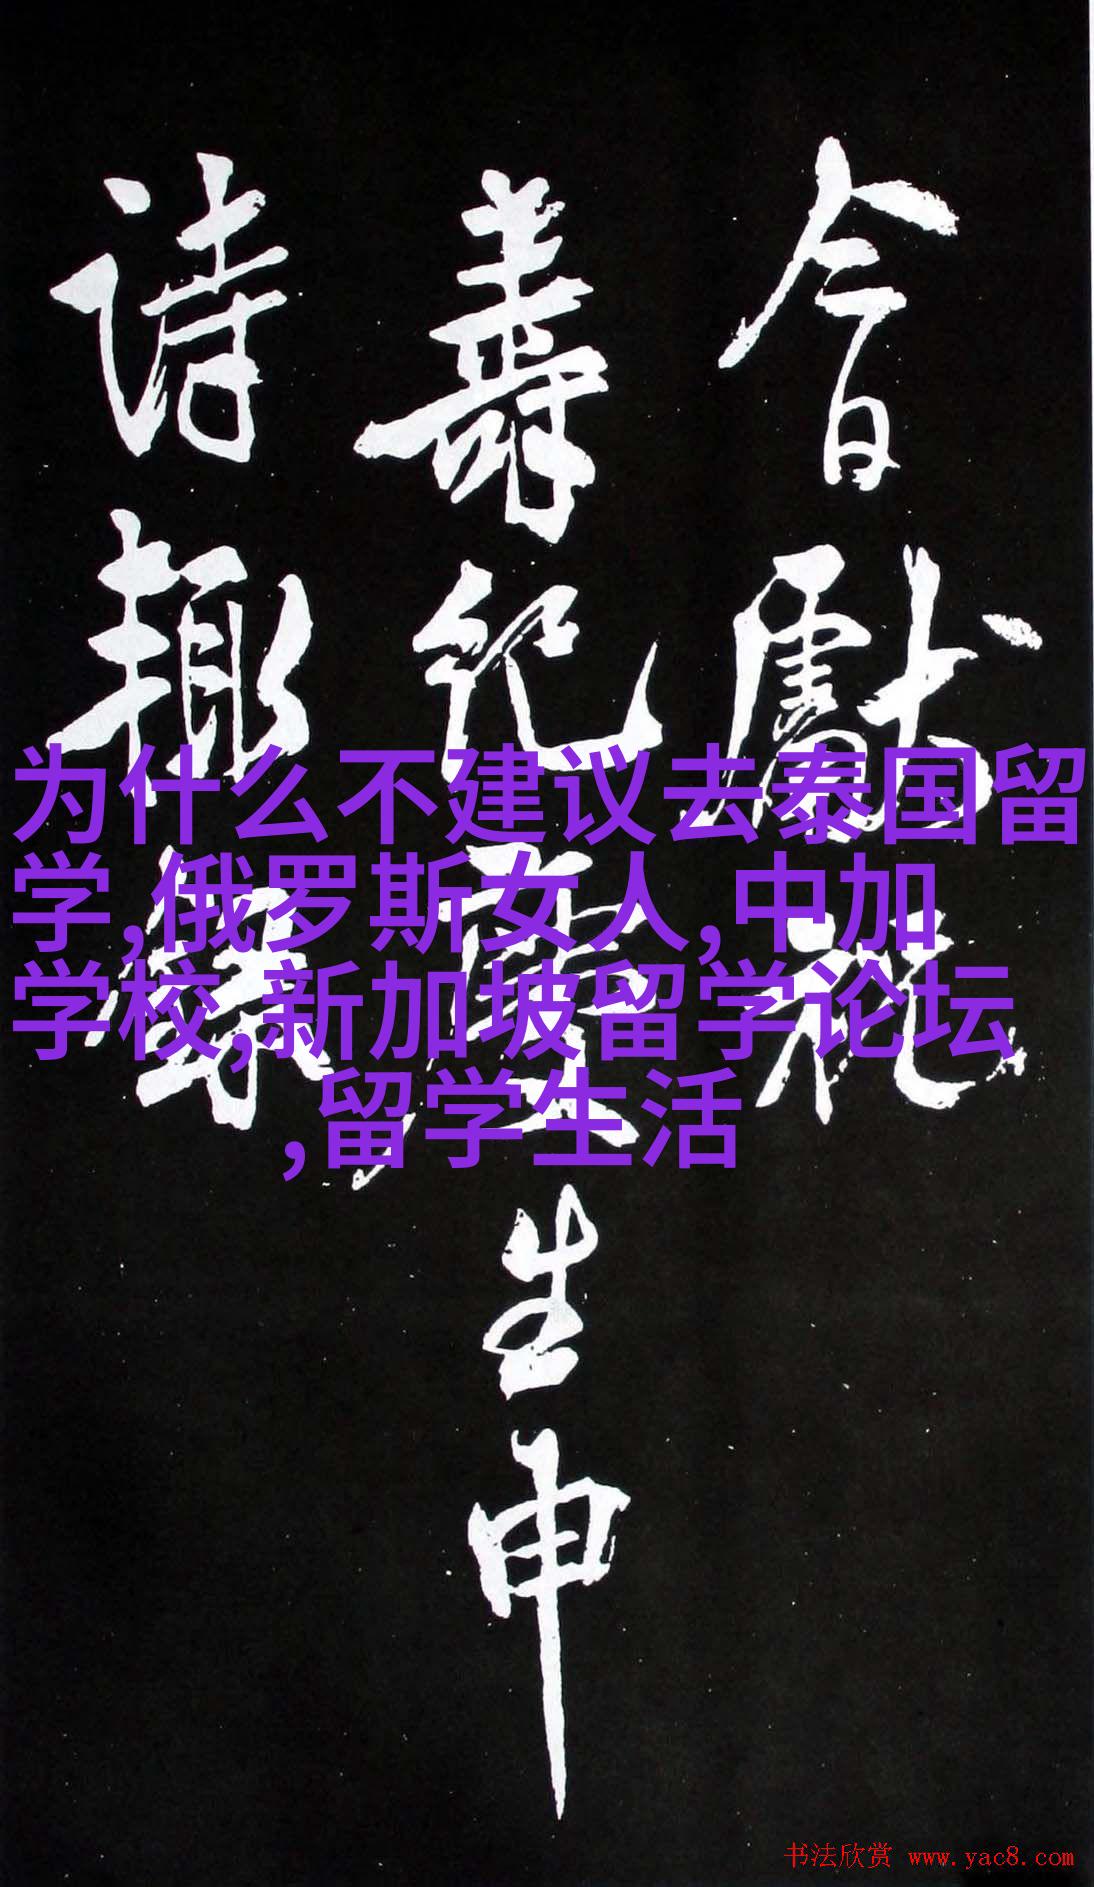 今日獻祝
壽紀慶生申
詩趣缘
为什么不建议去泰国留
学,俄罗斯女人,中加
学校,新加坡留学论坛
,留学生活
书法欣赏 www.yac8.com